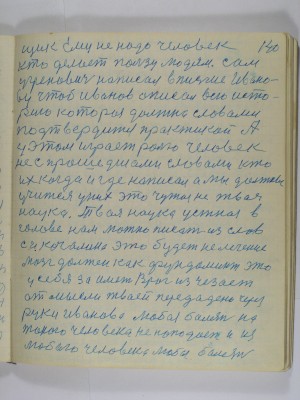 щик Ему не надо человек 140
кто делает пользу людям. Сам
написал в письме Ивано-
ву чтоб иванов описал всю исто-
рию которая должна словами
подтвердится практикой А
у этом играет роль человек
не с прошедшими словами кто
их когда и где написал а мы должны
учится у них это чужая не твоя
наука. Твоя наука устная в
голове нам можно писат из слов
с кого это будет не лечение
мозг должен как фундамент это
у себя за имет Враг из чезает
от мысли твоей предадено через
руки Иванова любая болезн на
такого человека не нападает и из
любого человека любая болезн